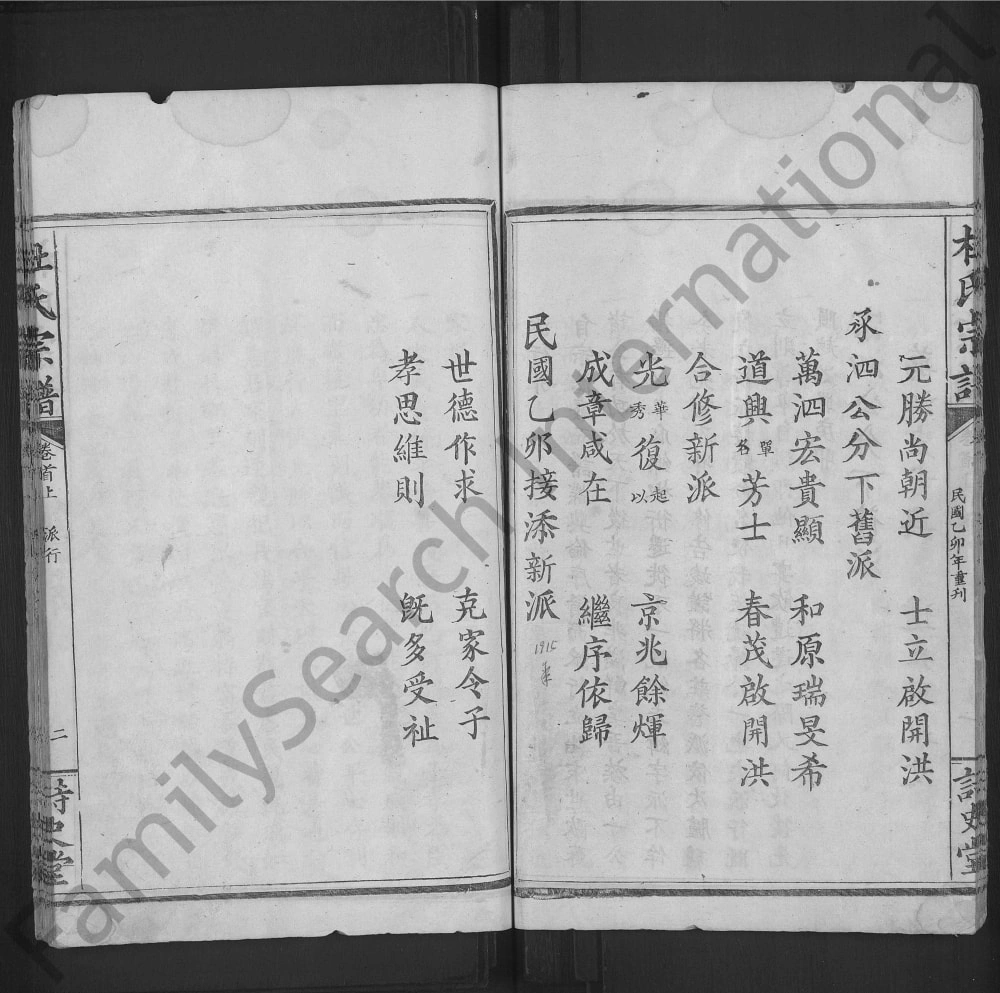 杜氏宗譜
民國乙卯年重刊
詩史堂
元勝尚朝近 士立啟開洪
承泗公分下舊派
萬泗宏貴顯 和原瑞旻希
道興 單名 芳士 春茂啟開洪
合修新派
光 華秀 復 起以 京兆餘煇
成章咸在 繼序依歸
民國乙卯接添新派
1915
世德作求 克家令子
孝思維則 既多受祉
杜氏宗譜
卷首上
派行
二
詩史堂
FamilySearch International